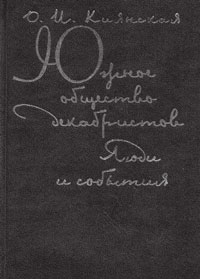 О. И. Киянская
Южное
общество
декабристов
Люди
и события